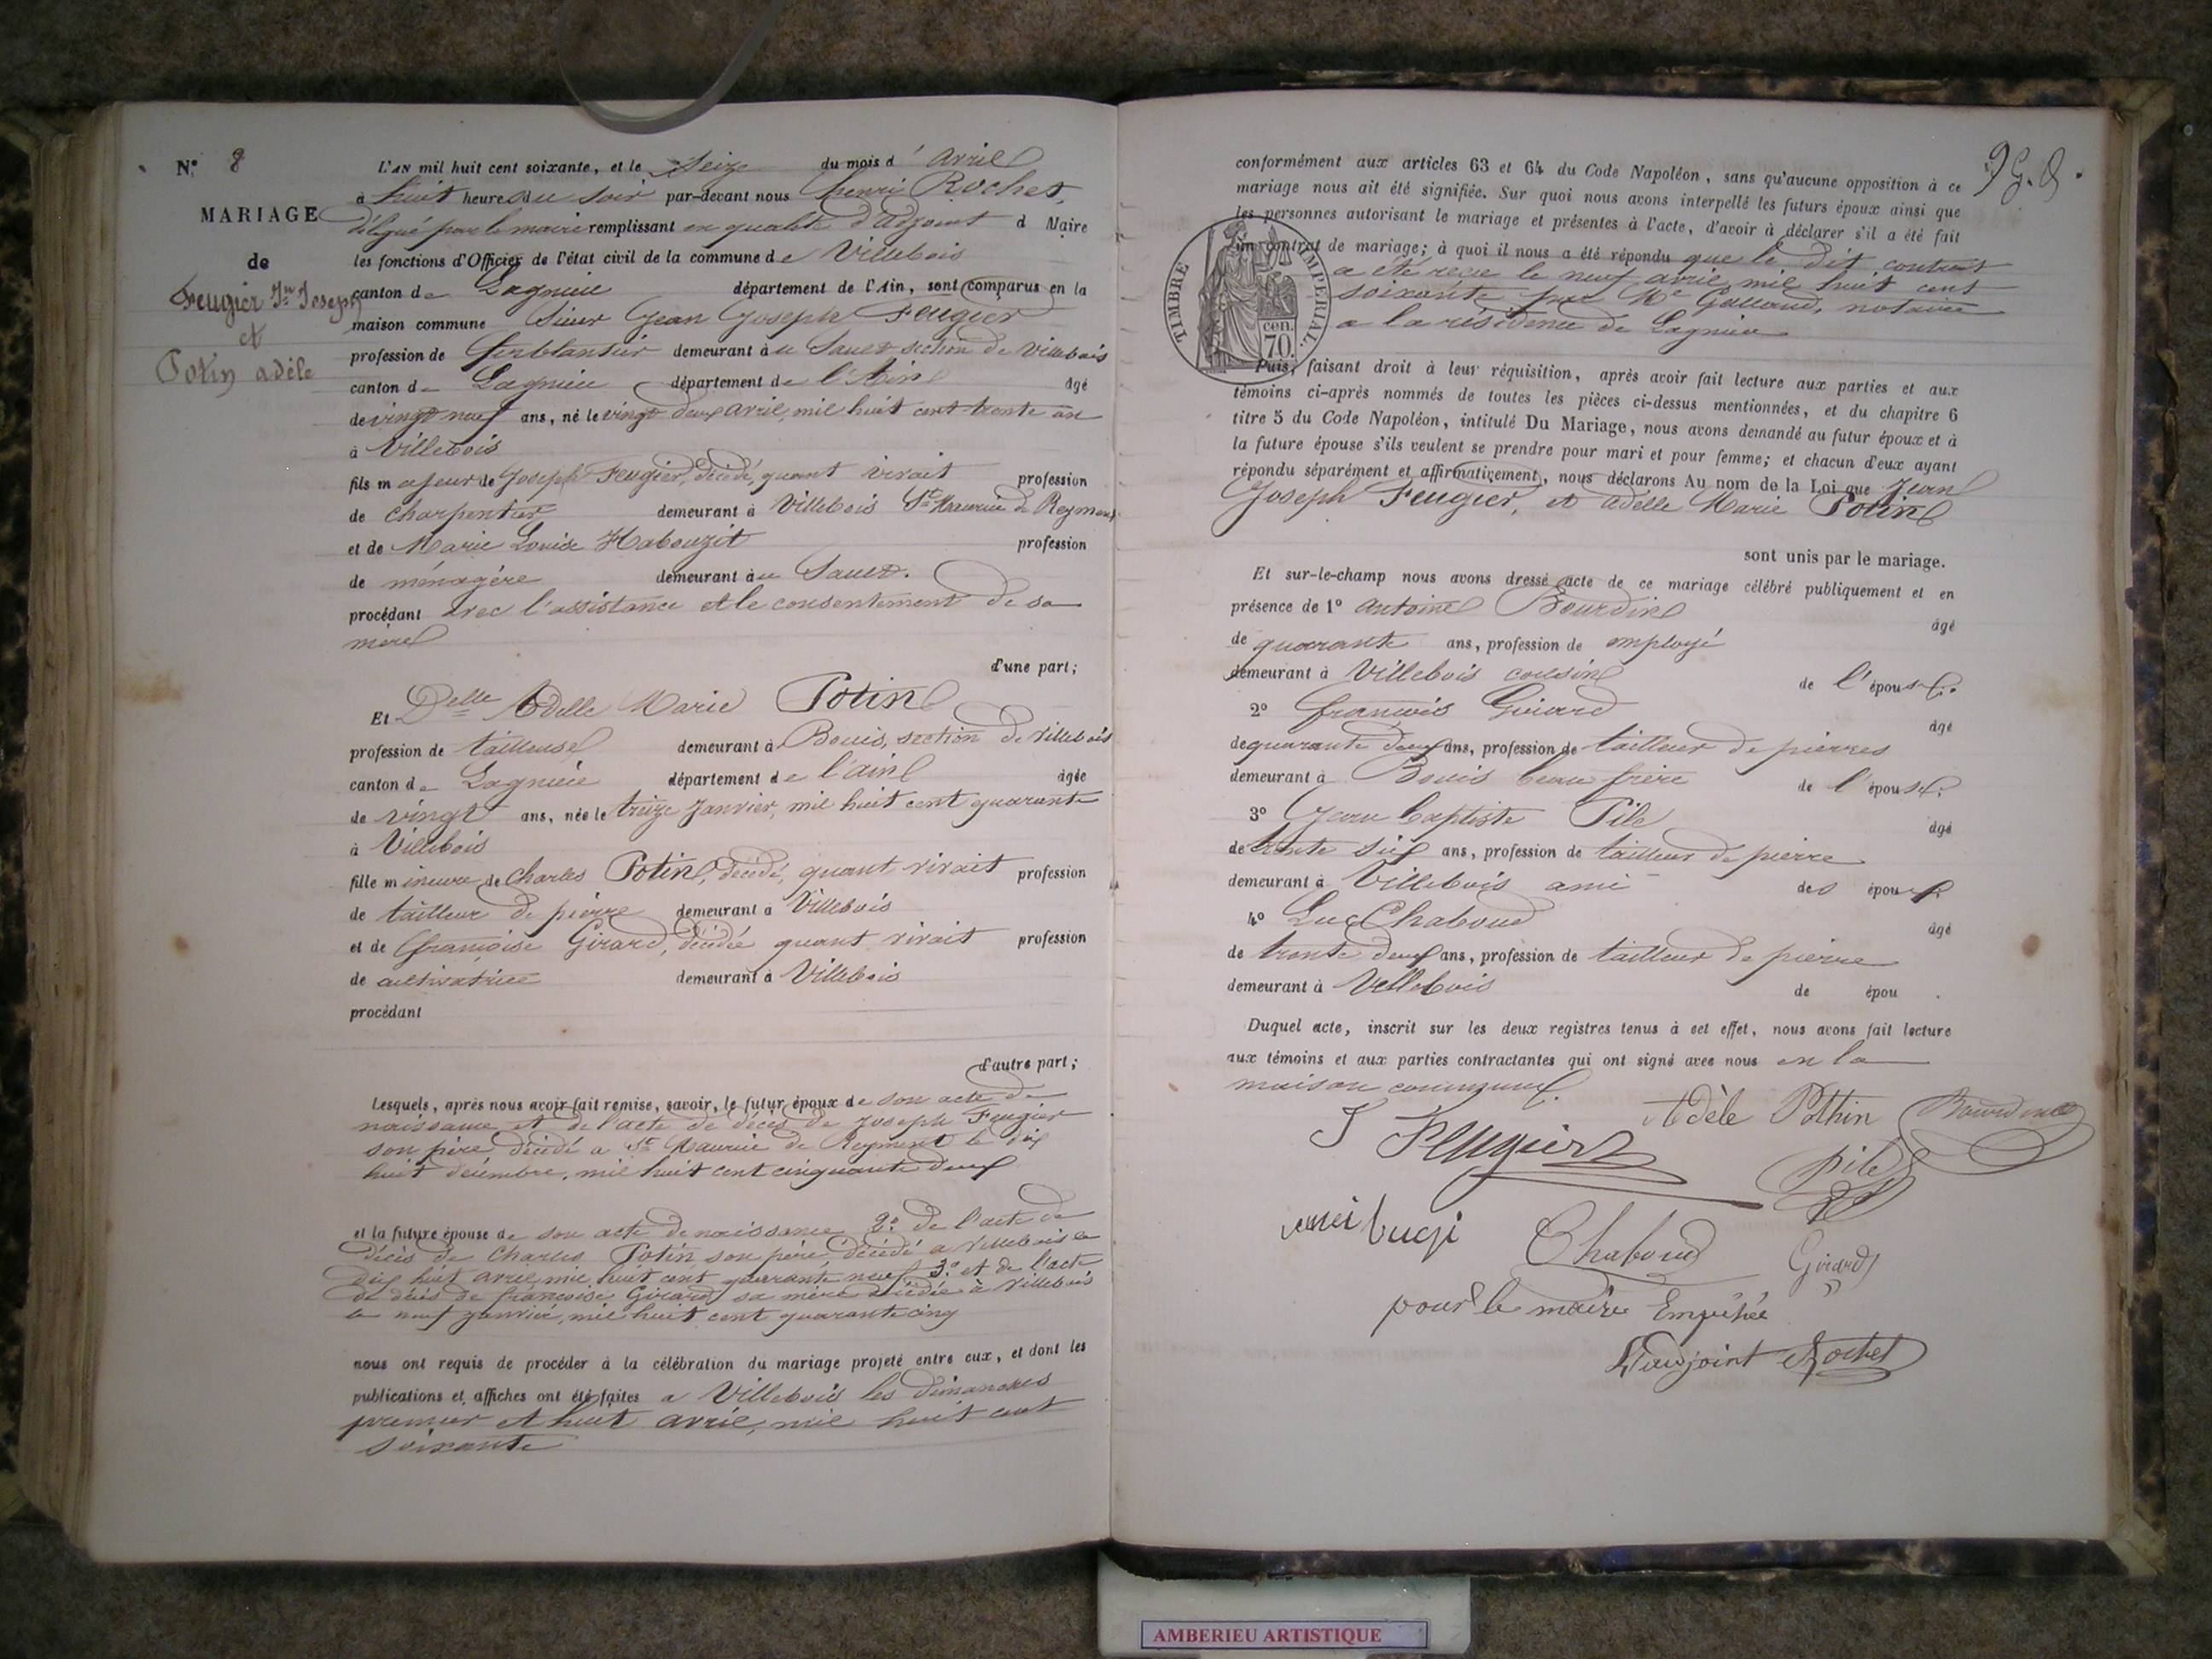 N.º 8
MARIAGE
de
Feugier Jn Joseph
et
Potin adèle
L'AN mil huit cent soixante, et le Seize du mois d'avril
à huit heures du soir par-devant nous henri Rochet,
délégué par le maire remplissant en qualité d'adjoint d Maire
les fonctions d'Officier de l'état civil de la commune de Villebois
canton de Lagnieu département de l'Ain, sont comparus en la
maison commune Sieur Jean Joseph Feugier
profession de ferblantier demeurant au Sault section de Villebois
canton de Lagnieu département de l'Ain âgé
de vingt neuf ans, né le vingt deux avril, mil huit cent trente un
à Villebois
fils majeur de Joseph Feugier, décédé, quant vivait profession
de charpentier demeurant à Villebois St Maurice de Reymens
et de Marie Louise Habouzit profession
de ménagère demeurant au Sault.
procédant avec l'assistance et le consentement de sa
mère
d'une part;
Et Delle Adelle Marie Potin
profession de tailleuse demeurant à Bouis, section de Villebois
canton de Lagnieu département de l'ain âgée
de vingt ans, née le treize Janvier, mil huit cent quarante
à Villebois
fille mineure de Charles Potin, décédé, quant vivait profession
de tailleur de pierre demeurant à Villebois
et de françoise Girard, décédée quant vivait profession
de cultivatrice demeurant à Villebois
procédant
d'autre part;
Lesquels, après nous avoir fait remise, savoir, le futur époux de son acte de
naissance et de l'acte de décès de Joseph Feugier
son père décédé a St Maurice de Reyment le dix
huit décembre, mil huit cent cinquante deux
et la future épouse de son acte de naissance 2º de l'acte de
décès de Charles Potin, son père, décédé a Villebois le
dix huit avril, mil huit cent quarante neuf 3º et de l'acte
de décès de françoise Girard sa mère décédée à Villebois
le neuf janvier, mil huit cent quarante cinq
nous ont requis de procéder à la célébration du mariage projeté entre eux, et dont les
publications et affiches ont été faites a Villebois les dimanches
premier et huit avril, mil huit cent
soixante
conformément aux articles 63 et 64 du Code Napoléon, sans qu'aucune opposition à ce
mariage nous ait été signifiée. Sur quoi nous avons interpellé les futurs époux ainsi que
les personnes autorisant le mariage et présentes à l'acte, d'avoir à déclarer s'il a été fait
un contrat de mariage; à quoi il nous a été répondu que le dit contrat
a été reçu le neuf avril mil huit cent
soixante par Me Galland, notaire
a la résidence de Lagnieu
TIMBRE IMPERIAL.
cen.
70.
Puis, faisant droit à leur réquisition, après avoir fait lecture aux parties et aux
témoins ci-après nommés de toutes les pièces ci-dessus mentionnées, et du chapitre 6
titre 5 du Code Napoléon, intitulé Du Mariage, nous avons demandé au futur époux et à
la future épouse s'ils veulent se prendre pour mari et pour femme; et chacun d'eux ayant
répondu séparément et affirmativement, nous déclarons Au nom de la Loi que Jean
Joseph Feugier, et adèlle Marie Potin
sont unis par le mariage.
Et sur-le-champ nous avons dressé acte de ce mariage célébré publiquement et en
présence de 1º antoine Bourdin âgé
de quarante ans, profession de employé
demeurant à Villebois cousin de l'épouse.
2º françois Girard âgé
de quarante deux ans, profession de tailleur de pierres
demeurant à Bouis beau frère de l'épouse.
3º Jean baptiste Pile âgé
de trente six ans, profession de tailleur de pierre
demeurant à Villebois ami des époux
4º Luc Chaboud âgé
de trente deux ans, profession de tailleur de pierre
demeurant à Villebois de épou .
Duquel acte, inscrit sur les deux registres tenus à cet effet, nous avons fait lecture
aux témoins et aux parties contractantes qui ont signé avec nous en la
maison commune.
J Feugier Adèle Pothin Bourdin
Pile
Chaboud Girard
pour le maire Empêché
L'adjoint Rochet
AMBERIEU ARTISTIQUE